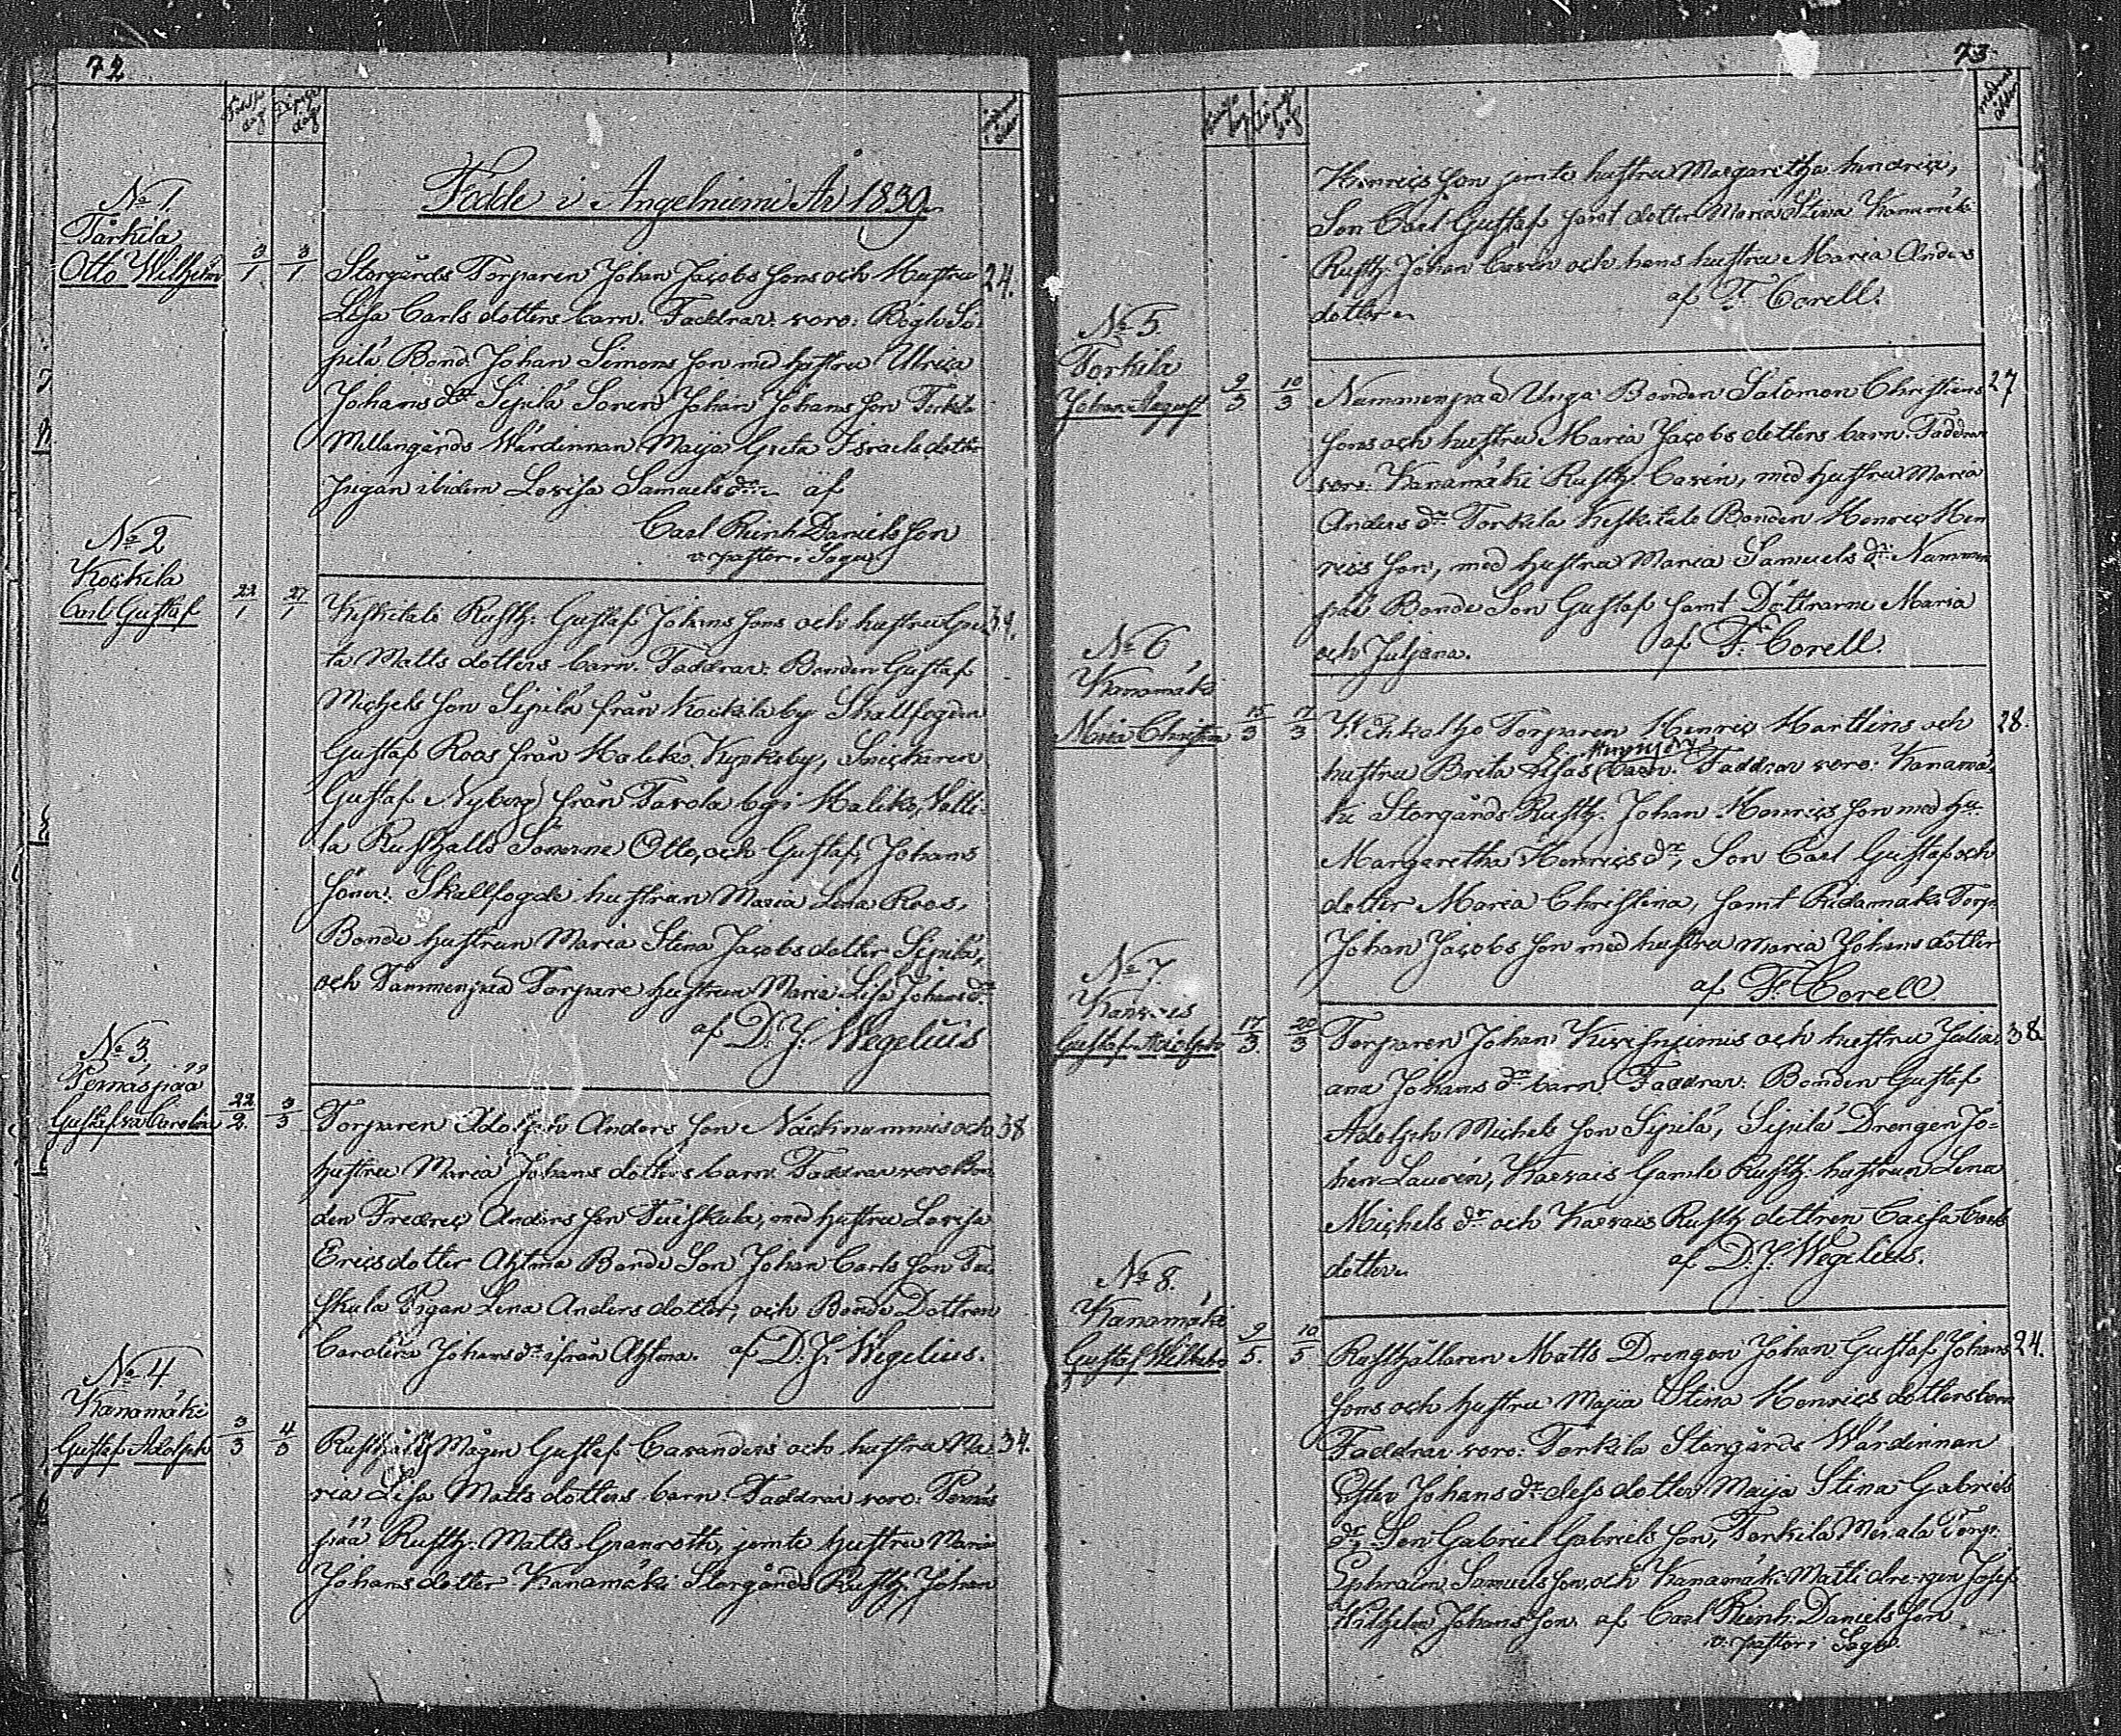 72
Födelse dag
Döpelse dag
Födde i Angelniemi År 1839
No 1.
Tårkila
Otto Wilhelm 3/1 3/1
Storgårds Torparen Johan Jacobs Sons och Hustru 24.
Lisa Carls dotters barn. Faddrar voro:
pilä Bond. Johan Simons Son med hustru Ulrica
Johans dr Sipilä Sonen Johan Johans Son Torkila
Mellangårds Wärdinnan Maja Greta Israels dotter
Pigan ibidem Lovisa Samuels dr af
Carl Reinh Daniels Son
v. pastor i Sagu
No 2
Koskila
Carl Gustaf 22/1 27/1
Keskitalo Rusth. Gustaf Johans Sons och hustru Gre 34.
ta Matts dotters barn. Faddrar: Bonden Gustaf
Michels Son Sipilä från Koskila by Skallfogden
Gustaf Roos från Haliko Kupkeby, Snickaren
Gustaf Nyberg från Tavola by i Haliko, Valti-
la Rusthålls Sönerne Otto, och Gustaf, Johans
Söner. Skallfogde hustrun Maria Lena Roos,
Bonde hustrun Maria Stina Jacobs dotter Sipilä,
och Tammenpää Torpare hustrun Maria Lisa Johans dr
af D. J. Wegelius
No 3.
Pernäspää
Gustafva Carolina 22/2. 3/3
Torparen Adolph Anders Son Näckinummis och 38
hustru Maria Johans dotters barn. Faddrar voro Bon
den Fredric Anders Son Tuiskula, med hustru Lovisa
Erics dotter Ahtma Bonde Son Johan Carls Son Tui
skula Pigan Lena Anders dotter, och Bonde Dottren
Carolina Johans dr ifrån Ahtma. af D. J. Wegelius.
No 4.
Kanamäki
Gustaf Adolph 3/3 4/3
Rusthålls Mågen Gustaf Casanders och hustru Ma 34.
ria Lisa Matts dotters barn. Faddrar voro: Pernäs
pää Rusth. Matts Granroth, jemte hustru Maria
Johans dotter Kanamäki Storgårds Rusth. Johan
73.
Henrics Son jemte hustru Margaretha Hendrics,
Son Carl Gustaf samt dotter Maria Stina Kanamäki
Rusth. Johan Casén och hans hustru Maria Anders
dotter af F. Corell.
No 5.
Torkila
Johan August 9/3 10/3
Nummenpää Unga Bonden Salomon Christians 27
Sons och hustru Maria Jacobs dotters barn. Faddrar
voro: Kanamäki Rusth. Casén, med hustru Maria
Anders dr Torkila Keskitalo Bonden Henric Hen
rics Son, med hustru Maria Samuels dr Nummen
pää Bonde Son Gustaf samt Döttrarne Maria
och Juljana. af F. Corell.
No 6
Kanamäki
Maia Christina 15/3 17/3
Torparen Henric Martlins och 28.
hustru Brita Lisas barn. Faddrar voro: Kanamä-
ki Storgårds Rusth. Johan Henrics Son med hu.
Margaretha Henrics dr, Son Carl Gustaf och
dotter Maria Christina, samt Ridamäki Torp.
Johan Jacobs Son med hustru Maria Johans dotter
af F. Corell
No 7.
Karvais
Gustaf Adolph 17/3. 20/3
Torparen Johan Kivisniemis och hustru Juli 38
ana Johans dr barn. Faddrar: Bonden Gustaf
Adolph Michels Son Sipilä, Sipilä Drengen Jo-
han Laurén, Karvais Gamle Rusth. hustrun Lena
Michels dr och Karvais Rusth. dottren Caisa Carls
dotter. af D. J. Wegelius.
No 8.
Kanamäki
Gustaf Wilhelm 9/5. 10/5
Rusthållaren Matts Drengen Johan Gustaf Johans 24.
Sons och hustru Maja Stina Henrics dotters barn
Faddrar voro: Torkila Storgårds Wärdinnan
Ester Johans dr dess dotter Maija Stina Gabriels
dr, Son Gabriel Gabriels Son, Torkila Torp.
Ephraim Samuels Son, och Kanamäki Matti drengen Josef
Wilhelm Johans Son. af Carl Reinh. Daniels Son
v. pastor i Sagu.